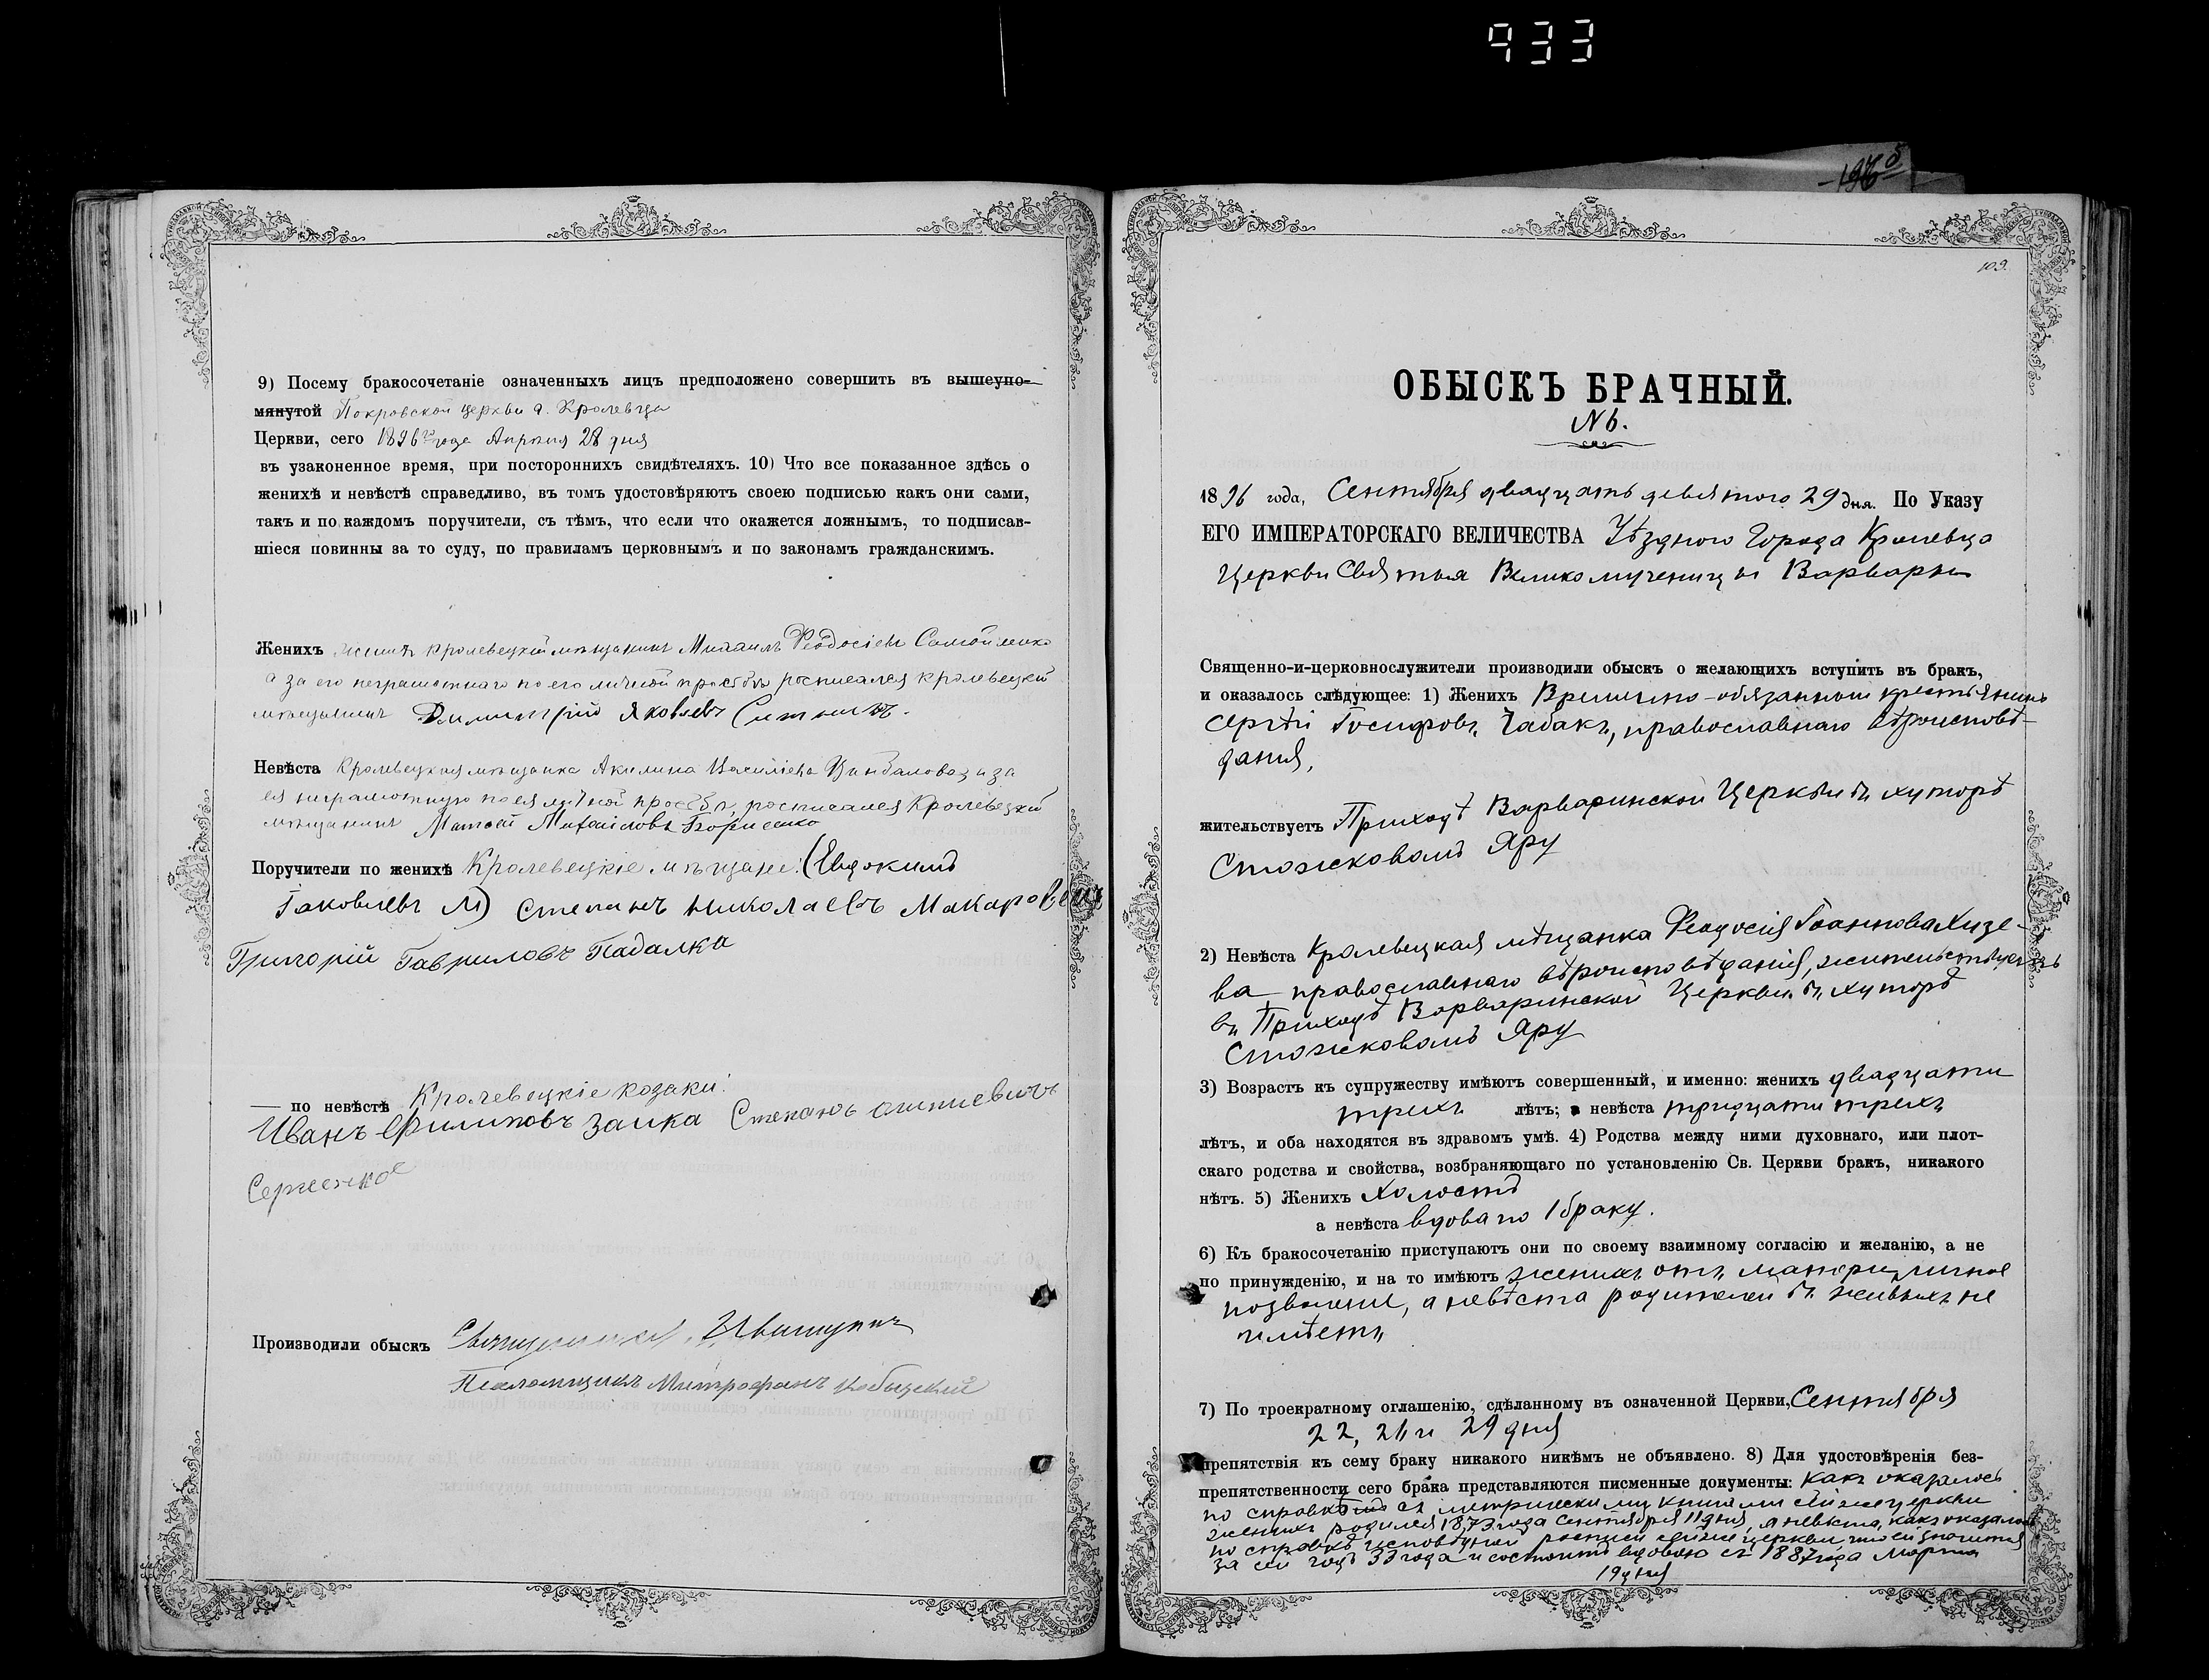 933
9) Посему бракосочетаніе означенныхъ лицъ предположено совершить въ вышеупо-
мянутой Покровской церкви г. Кролевца
Церкви, сего 1896го года Апрѣля 28 дня
въ узаконенное время, при постороннихъ свидѣтеляхъ. 10) Что все показанное здѣсь о
женихѣ и невѣстѣ справедливо, въ томъ удостовѣряютъ своею подписью какъ они сами,
такъ и по каждомъ поручители, съ тѣмъ, что если что окажется ложнымъ, то подписав-
шіеся повинны за то суду, по правиламъ церковнымъ и по законамъ гражданскимъ.
Женихъ Кролевецкій мѣщанинъ Михаилъ Ѳеодосіевъ Самойленко
а за его неграмотнаго по его личной просьбѣ росписался кролевецкій
мѣщанинъ Димитрій Яковлевъ Ситникъ.
Невѣста Кролевецкая мѣщанка Акилина Василіева а за
ея неграмотную по ея личной просьбѣ росписался Кролевецкій
мѣщанинъ Матвей Михаиловъ Борисенко
Поручители по женихѣ Кролевецкіе мѣщане: (Евдокимъ
Іаковлевъ М) Степанъ Николаевъ Макаровецъ
Григорій Гавриловъ Падалка
— по невѣстѣ Кролевецкіе козаки:
Иванъ Филиповъ Заика Степанъ
Сергіенко
Производили обыскъ Священникъ
Псаломщикъ Митрофанъ
1965
109.
ОБЫСКЪ БРАЧНЫЙ.
№ 6.
1896 года, Сентября двадцать девятого 29 дня. По Указу
ЕГО ИМПЕРАТОРСКАГО ВЕЛИЧЕСТВА Уѣздного Города Кролевца
Церкви Святыя Великомученицы Варвары
Священно-и-церковнослужители производили обыскъ о желающихъ вступить въ бракъ,
и оказалось слѣдующее: 1) Женихъ Временно-обязанный крестьянинъ
Сергѣй Іосифовъ Чабакъ, православнаго вѣроисповѣ-
данія,
жительствуетъ Приходѣ Варваринской Церкви въ хуторѣ
Стожковомъ Яру
2) Невѣста Кролевецкая мѣщанка Ѳеодосія Іоаннова Хизе-
ва православнаго вѣроисповѣданія, жительствуетъ
въ Приходѣ Варваринской Церкви въ хуторѣ
Стожковомъ Яру
3) Возрастъ къ супружеству имѣютъ совершенный, и именно: женихъ двадцати
трехъ лѣтъ; а невѣста тридцати трехъ
лѣтъ, и оба находятся въ здравомъ умѣ. 4) Родства между ними духовнаго, или плот-
скаго родства и свойства, возбраняющаго по установленію Св. Церкви бракъ, никакого
нѣтъ. 5) Женихъ холостъ
а невѣста вдова по 1 браку.
6) Къ бракосочетанію приступаютъ они по своему взаимному согласію и желанію, а не
по принужденію, и на то имѣютъ женихъ отъ матери личное
позволеніе, а невѣста родителей въ живыхъ не
имѣетъ
7) По троекратному оглашенію, сдѣланному въ означенной Церкви, Сентября
22, 26 и 29 дня
препятствія къ сему браку никакого никѣмъ не объявлено. 8) Для удостовѣренія без-
препятственности сего брака представляются писменные документы: какъ оказалось
по справкѣ съ метрическими книгами сей же церкви
женихъ родился 1873 года Сентября 11 дня, а невѣста, какъ оказалось
по справкѣ исповѣдной росписи сей же церкви что ей значится
за сей годъ 33 года и состоитъ вдовою съ 1887 года Марта
19 дня